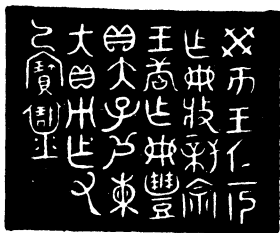 癸亥王𢓊于
乍冊般新宗
王商乍冊豐
貝大子易東
大貝用乍父
己寶